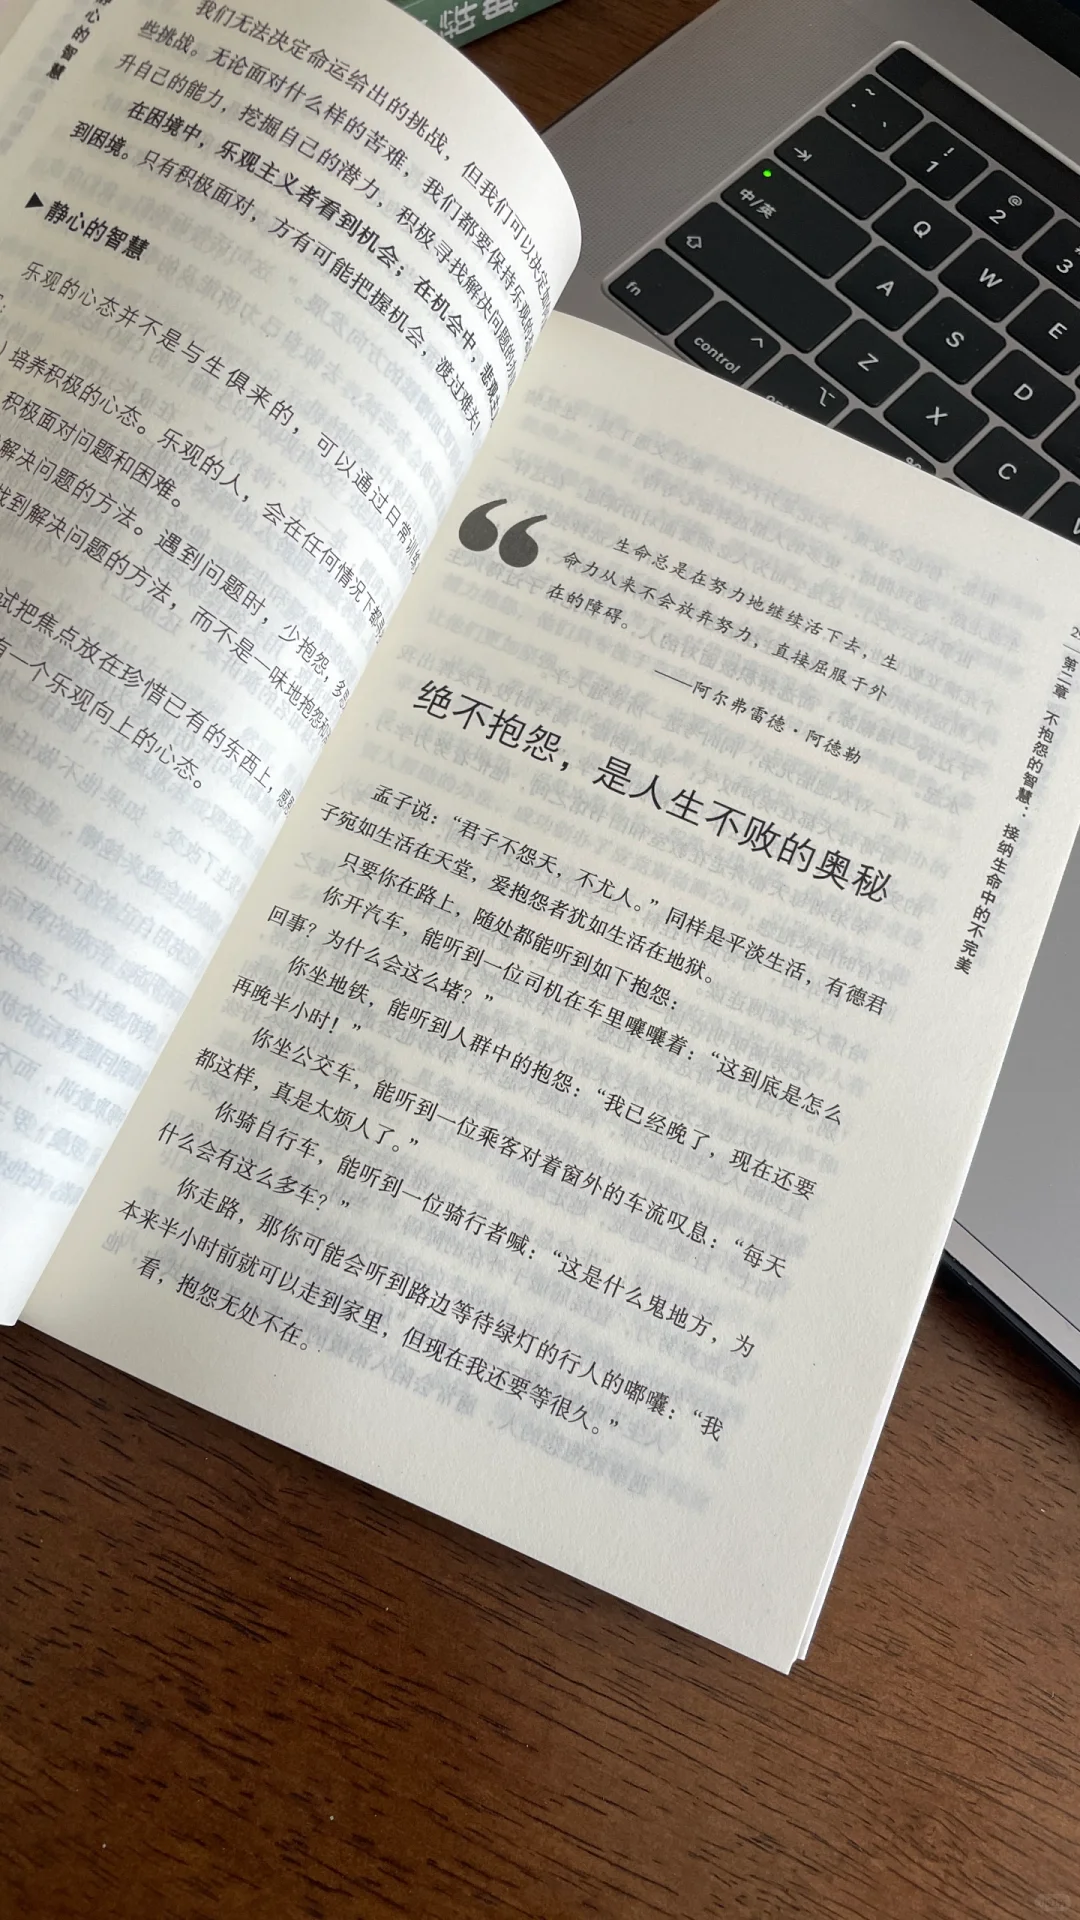 静心的智慧
我们无法决定命运给出的挑战，但我们可以决定如
些挑战。无论面对什么样的苦难，我们都要保持乐观的
升自己的能力，挖掘自己的潜力，积极寻找解决问题的
在困境中，乐观主义者看到机会；在机会中，悲观
到困境。只有积极面对，方有可能把握机会，渡过难关！
▶静心的智慧
乐观的心态并不是与生俱来的，可以通过日常训练
）培养积极的心态。乐观的人，会在任何情况下都
积极面对问题和困难。
解决问题的方法。遇到问题时，少抱怨，多
找到解决问题的方法，而不是一味地抱怨和
试把焦点放在珍惜已有的东西上，感
有一个乐观向上的心态。
“
生命总是在努力地继续活下去，生
命力从来不会放弃努力，直接屈服于外
在的障碍。
——阿尔弗雷德·阿德勒
绝不抱怨，是人生不败的奥秘
孟子说：“君子不怨天，不尤人。”同样是平淡生活，有德君
子宛如生活在天堂，爱抱怨者犹如生活在地狱。
只要你在路上，随处都能听到如下抱怨：
你开汽车，能听到一位司机在车里嚷嚷着：“这到底是怎么
回事？为什么会这么堵？”
你坐地铁，能听到人群中的抱怨：“我已经晚了，现在还要
再晚半小时！”
你坐公交车，能听到一位乘客对着窗外的车流叹息：“每天
都这样，真是太烦人了。”
你骑自行车，能听到一位骑行者喊：“这是什么鬼地方，为
什么会有这么多车？”
你走路，那你可能会听到路边等待绿灯的行人的嘟囔：“我
本来半小时前就可以走到家里，但现在我还要等很久。”
看，抱怨无处不在。
第二章 不抱怨的智慧：接纳生命中的不完美
~ ! 1 @ 2 3
Q W E
中/英 A S D
Z X C
fn control